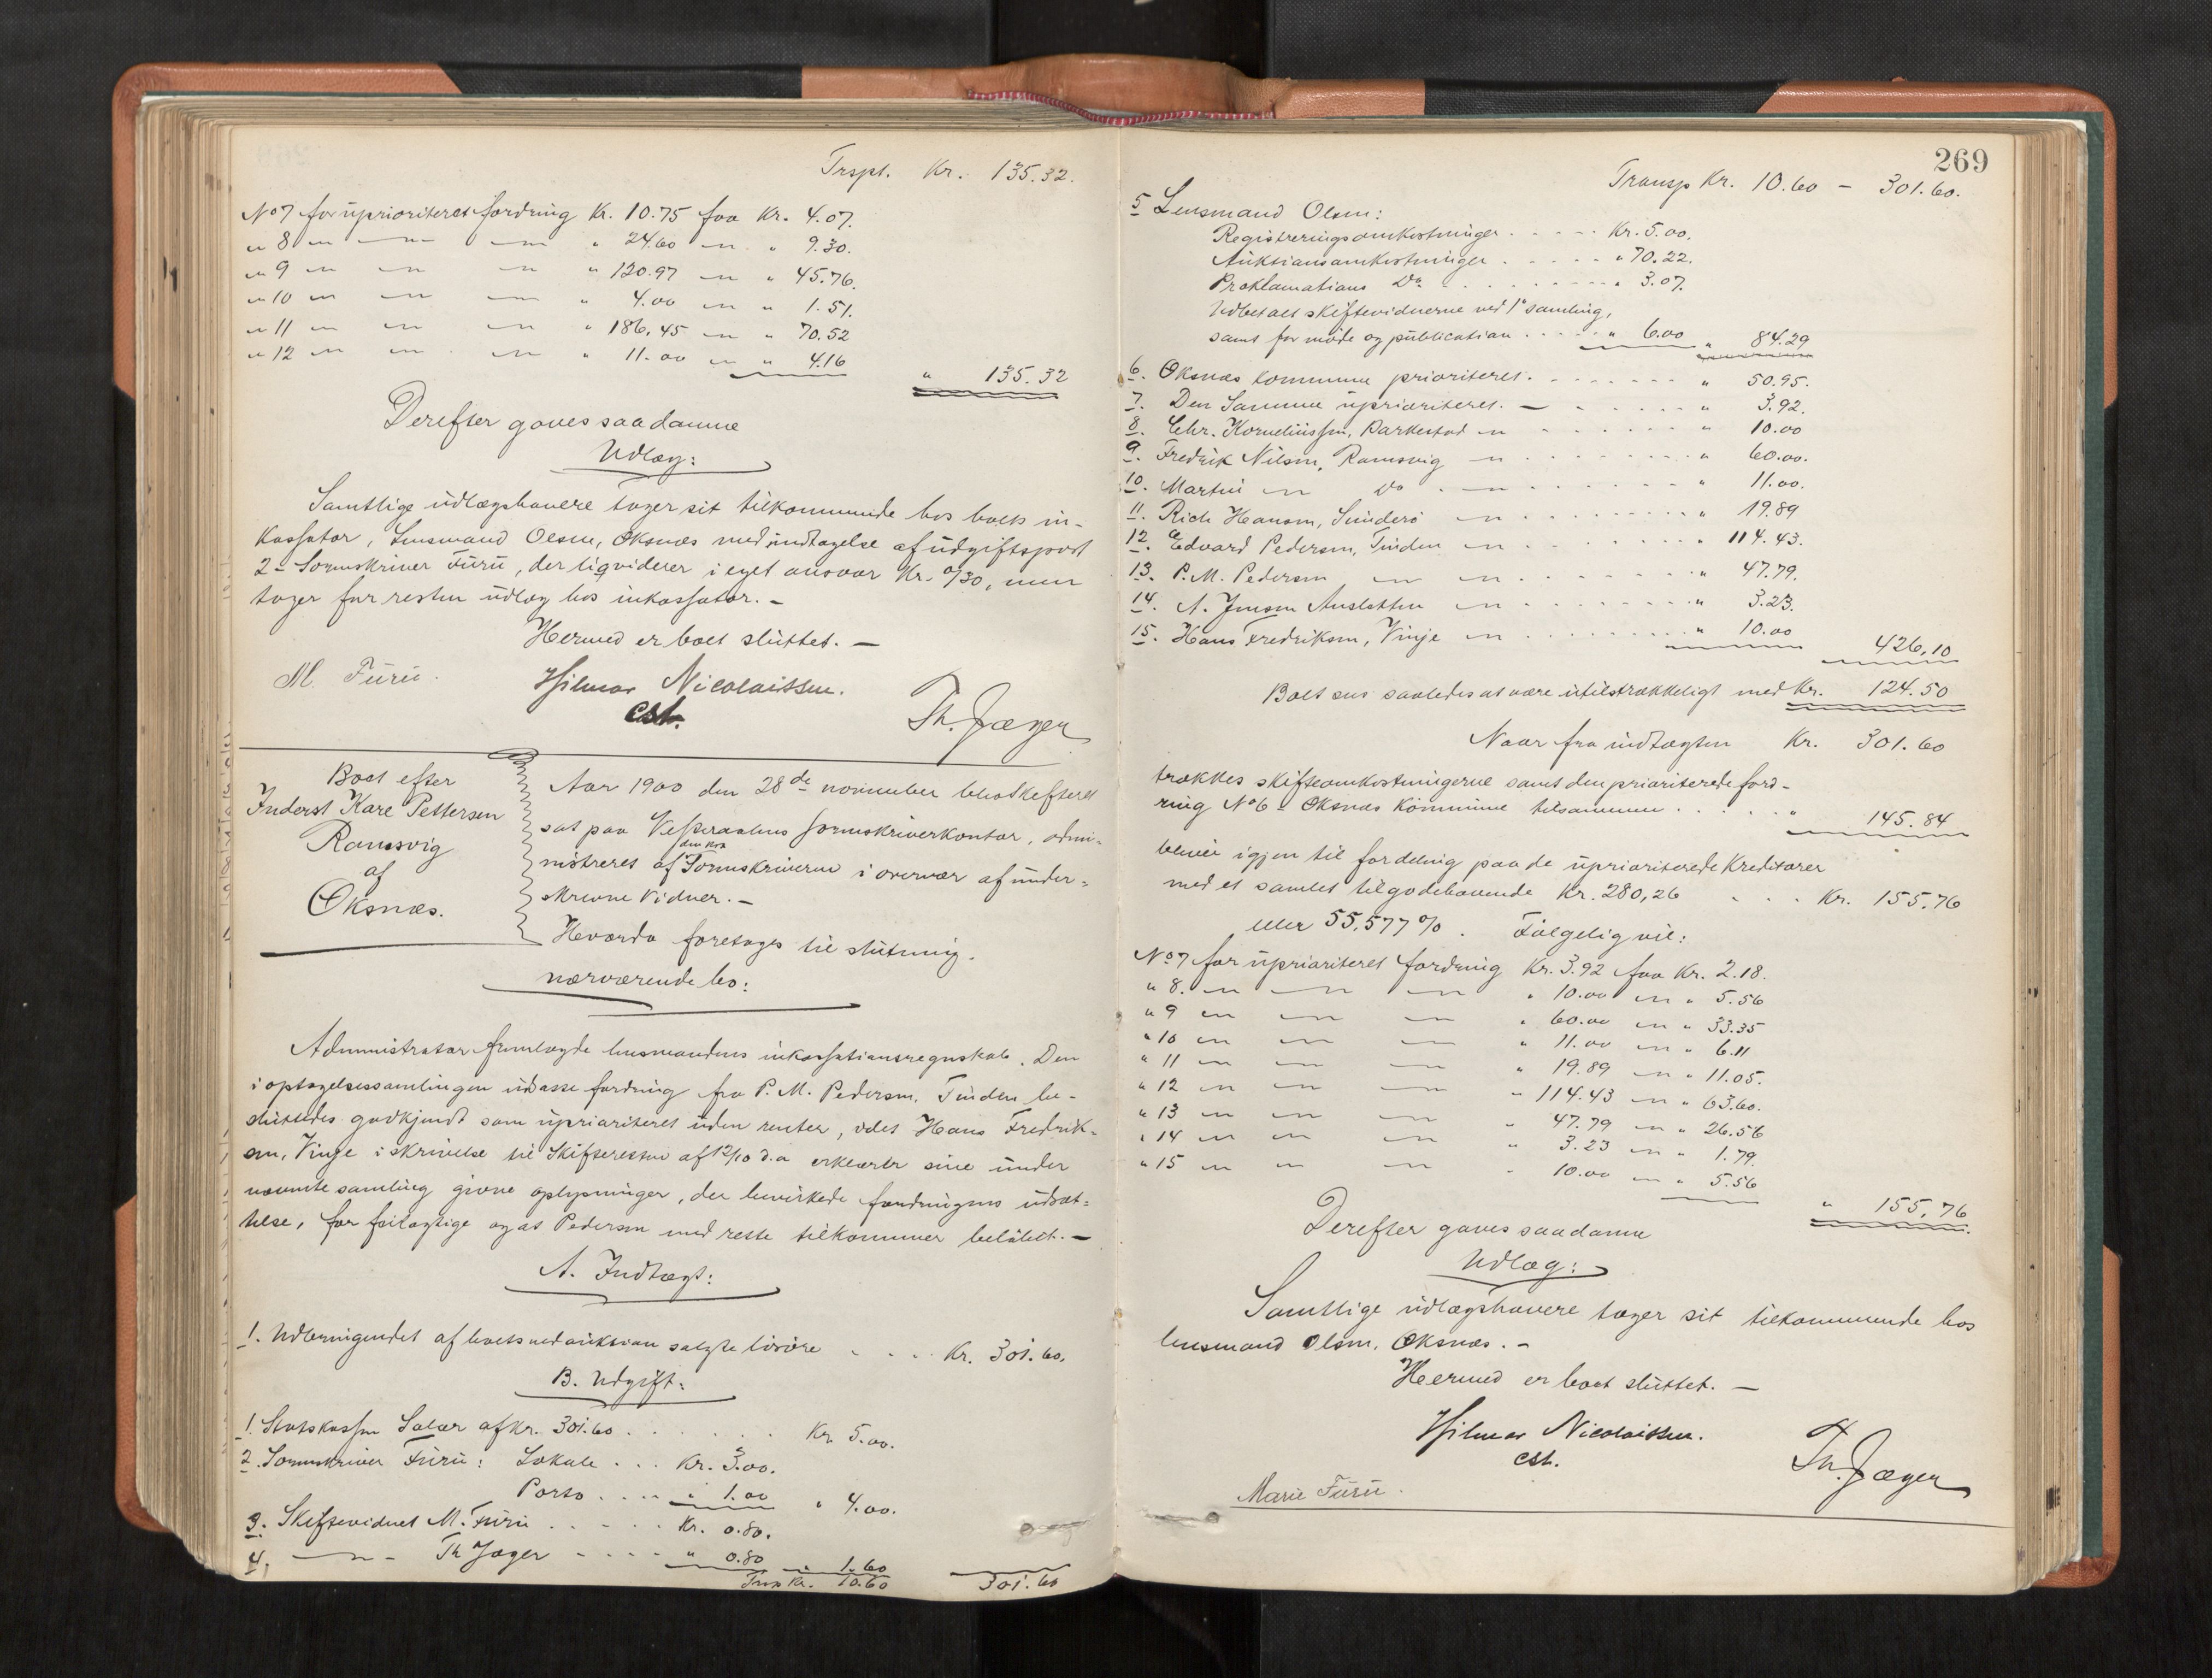 Trspt. Kr. 135.32.
No 7 for uprioriteret fordring Kr. 10.75 faa Kr. 4.07.
" 8 " — " — " — " 24.60 — " — " 9.30.
" 9 " — " — " — " 120.97 — " — " 45.76.
" 10 " — " — " — " 4.00 — " — " 1.51.
" 11 " — " — " — " 186.45 — " — " 70.52
" 12 " — " — " — " 11.00 — " — " 4.16
" 135.32
Derefter gaves saadanne
Udlæg:
Samtlige udlægshavere tager sit tilkommende hos boets in-
kassator, Lensmand Olsen, Øksnæs med undtagelse af udgiftspost
2 - Sorenskriver Furu, der liqviderer i eget ansvar Kr. 0/30, men
tager for resten udlæg hos inkassator. —
Hermed er boet sluttet. —
M. Furu.
Hilmar Nicolaissen.
cst.
Th. Jæger
Boet efter
Inderst Kare Pettersen
Ramsvig
af
Øksnæs.
Aar 1900 den 28de november blev skifteret
sat paa Vesteraalens sorenskriverkontor, admi-
nistreret af den kst. Sorenskriveren i overvær af under-
skrevne vidner. —
Hvorda foretages til slutning.
nærværende bo:
Administrator fremlagde lensmandens inkassationsregnskab. Den
i optagelsessamlingen udsatte fordring fra P. M. Pedersen, Tinden be-
sluttedes godkjendt som uprioriteret uden renter, idet Hans Fredrik-
sen, Vinje i skrivelse til Skifteretten af 12/10 d.a erklærer sine under
nævnte samling givne oplysninger, der bevirkede fordringens udsæt-
telse, for feilagtige og at Pedersen med rette tilkommer beløbet. —
A. Indtægt:
1. Udbringendet af boets ved auktion solgte løsøre . . . . Kr. 301.60.
B. Udgift:
1. Statskassen Salær af Kr. 301.60 . . . . . . Kr. 5.00.
2. Sorenskriver Furu: Lokale . . . Kr. 3.00.
Porto . . . . " 1.00 " 4.00.
3. Skiftevidnet M. Furu . . . . . Kr. 0.80.
4. — " — Th Jæger . . . . " 0.80 " 1.60
Trsp Kr. 10.60 301.60
269
Transp Kr. 10.60 — 301.60.
5 Lensmand Olsen:
Registreringsomkostninger . . . . . Kr. 5.00.
Auktionsomkostninger . . . . . " 70.22.
Proklamations Do . . . . . . . . " 3.07.
Udbetalt skiftevidnerne ved 1e samling,
samt for møde og publication . . . . " 6.00 " 84.29
6. Øksnæs kommune prioriteret. . . . . . . . " 50.95.
7. Den Samme uprioriteret. — . . . . . " 3.92.
8. Chr. Korneliussen, Barkestad — " — . . . . . . " 10.00
9. Fredrik Nilsen, Ramsvig — " — . . . . . . " 60.00.
10. Martin — " — Do . — " — . . . . . . " 11.00.
11. Rich Hansen, Sunderø — " — . . . . . . " 19.89
12. Edvard Pedersen, Tinden — " — . . . . . . " 114.43.
13. P. M. Pedersen — " — — " — . . . . . . " 47.79.
14. A. Jensen Ansletten — " — . . . . . . " 3.23.
15. Hans Fredriksen, Vinje — " — . . . . . . " 10.00 426.10
Boet sees saaledes at være utilstrækkeligt med Kr. 124.50
Naar fra indtægten Kr. 301.60
trækkes skifteomkostningerne samt den prioriterede ford-
ring No 6 - Øksnæs Kommune tilsammen . . . . . " 145.84
bliver igjen til fordeling paa de uprioriterede Kreditorer
med et samlet tilgodehavende Kr. 280,26 . . . Kr. 155.76
eller 55.577 %. Følgelig vil:
No 7 for uprioriteret fordring Kr. 3.92 faa Kr. 2.18.
" 8. — " — " — " — " 10.00 — " — " 5.56
" 9 — " — " — " — " 60.00 — " — " 33.35
" 10 — " — " — " — " 11.00 — " — " 6.11
" 11 — " — " — " — " 19.89 — " — " 11.05.
" 12 — " — " — " — " 114.43 — " — " 63.60.
" 13 — " — " — " — " 47.79 — " — " 26.56
" 14 — " — " — " — " 3.23 — " — " 1.79.
" 15 — " — " — " — " 10.00 — " — " 5.56
" 155.76
Derefter gaves saadanne
Udlæg:
Samtlige udlægshavere tager sit tilkommende hos
lensmand Olsen, Øksnæs. —
Hermed er boet sluttet. —
Hilmar Nicolaissen.
cst.
Th. Jæger
Marie Furu.